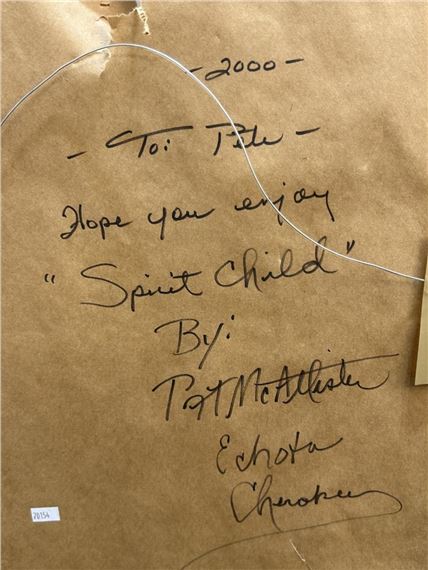 - 2000 -
- To: Pete -
Hope you enjoy
"Spirit Child"
By:
Pat McAllister
Echota
Cherokee
20154